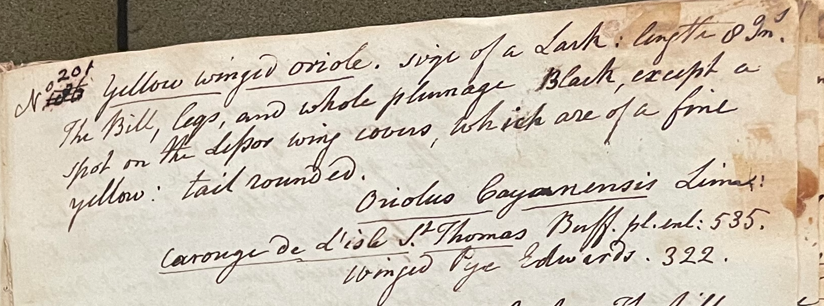 No 201 Yellow winged oriole. size of a Lark: length 8 Ins.
The Bill, legs, and whole plumage Black, except a
spot on the lesser wing covers, which are of a fine
yellow: tail rounded.
Oriolus Cayanensis Linn:
Carouge de l'isle St Thomas Buff. pl. enl: 535.
Winged Pye Edwards. 322.